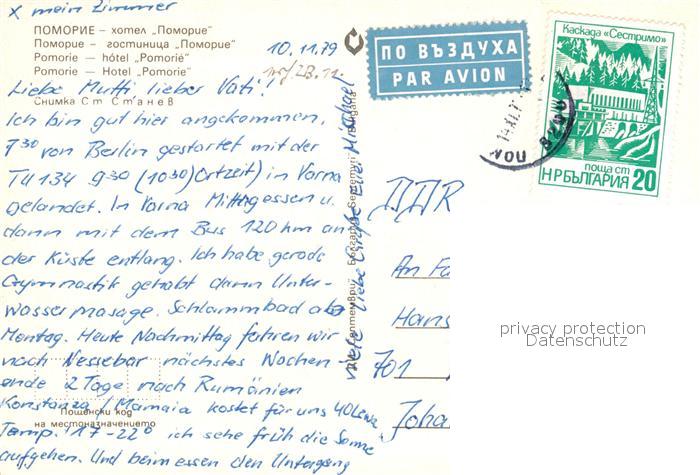 x mein Zimmer
ПОМОРИЕ – хотел „Поморие"
Поморие – гостиница „Поморие"
Pomorie – hôtel „Pomorié"
Pomorie – Hotel „Pomorie"
10.11.79
Снимка Ст. Станев
Liebe Mutti, lieber Vati!
Ich bin gut hier angekommen.
7³⁰ von Berlin gestartet mit der
TU 134 9³⁰ (10³⁰) Ortzeit) in Varna
gelandet. In Varna Mittagessen u.
dann mit dem Bus 120 km an
der Küste entlang. Ich habe gerade
Gymnastik gehabt dann Unter-
wassermasage. Schlammbad ab
Montag. Heute Nachmittag fahren wir
nach Nessebar nächstes Wochen-
ende 2 Tage nach Rumänien
Konstanza / Mamaia kostet für uns 40 Lewa.
Пощенски код
на местоназначението
Temp. 17-22° ich sehe früh die Sonne
aufgehen. Und beim essen den Untergang
viele liebe Grüße Eure
Септември България Septemvri Bulgaria
ПО ВЪЗДУХА
PAR AVION
Каскада „Сестримо"
поща ст
НР БЪЛГАРИЯ 20
ПОМ
DDR
An Fa
Hans
701
Joha
privacy protection
Datenschutz